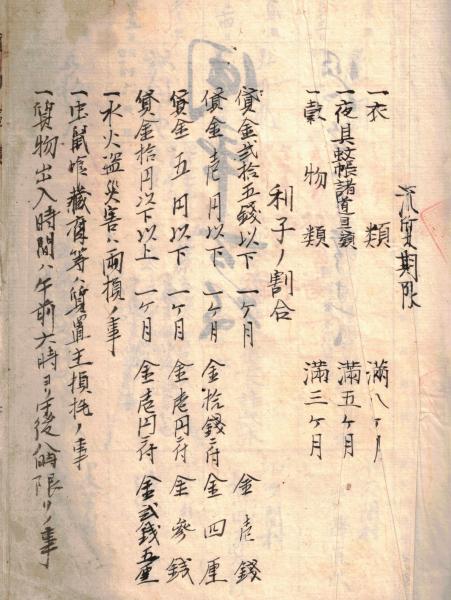 流質期限
一衣類 満八ヶ月
一夜具蚊帳諸道具類 満五ヶ月
一穀物類 満三ヶ月
利子ノ割合
貸金弐拾五錢以下 一ヶ月 金壱錢
貸金壱円以下 一ヶ月 金拾錢ニ付 金四厘
貸金五円以下 一ヶ月 金壱円ニ付 金參錢
貸金拾円以下以上 一ヶ月 金壱円ニ付 金弐錢五厘
一水火盗災害ハ両損ノ事
一虫鼠喰藏腐等ハ質置主損耗ノ事
一質物出入時間ハ午前六時ヨリ午後八時限リノ事